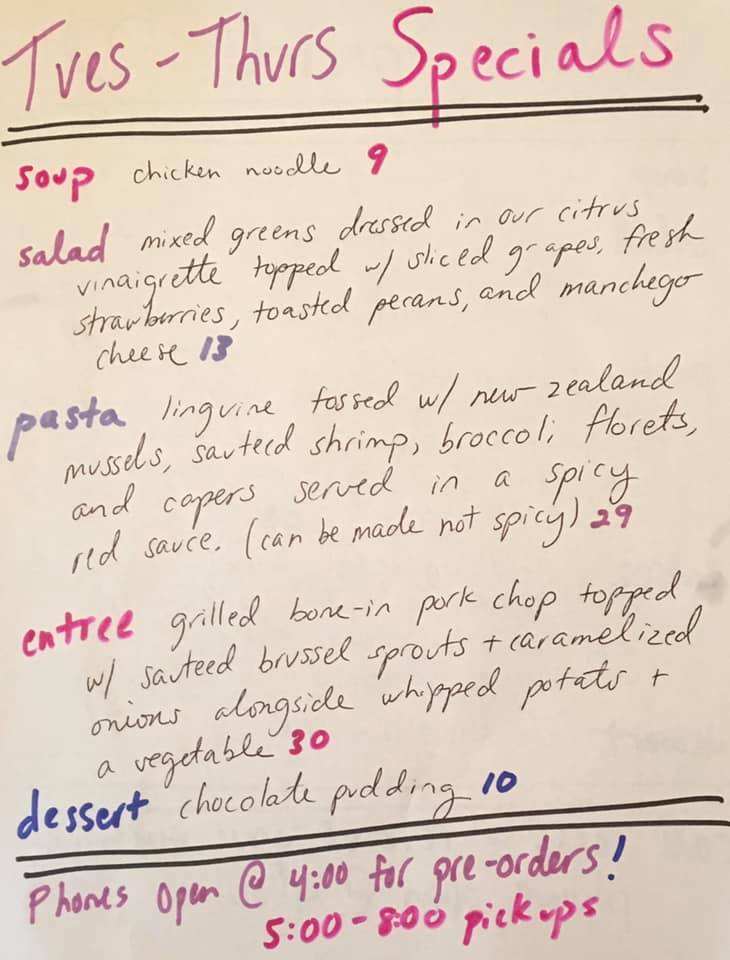 Tues - Thurs Specials
soup chicken noodle 9
salad mixed greens dressed in our citrus
vinaigrette topped w/ sliced grapes, fresh
strawberries, toasted pecans, and manchego
cheese 13
pasta linguine tossed w/ new zealand
mussels, sauteed shrimp, broccoli florets,
and capers served in a spicy
red sauce. (can be made not spicy) 29
entree grilled bone-in pork chop topped
w/ sauteed brussel sprouts + caramelized
onions alongside whipped potats +
a vegetable 30
dessert chocolate pudding 10
Phones Open @ 4:00 for pre-orders!
5:00 - 8:00 pickups